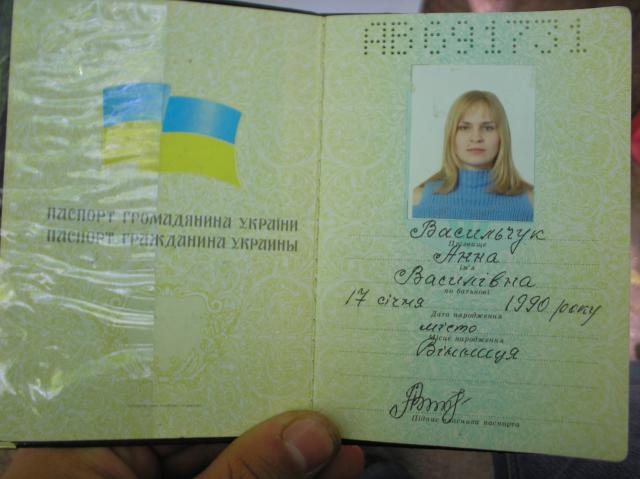 ПАСПОРТ ГРОМАДЯНИНА УКРАЇНИ
ПАСПОРТ ГРАЖДАНИНА УКРАИНЫ
АВ691731
Васильчук
Прізвище
Анна
Ім'я
Василівна
по батькові
17 січня 1990 року
Дата народження
місто
Місце народження
Вінниця
Підпис власника паспорта